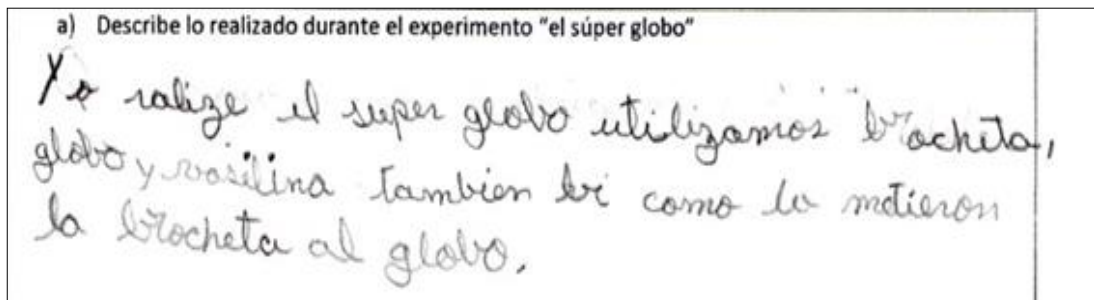 a) Describe lo realizado durante el experimento "el súper globo"
Yo ralize el super globo utilizamos brocheta,
globo y vasilina tambien bi como lo metieron
la brocheta al globo.